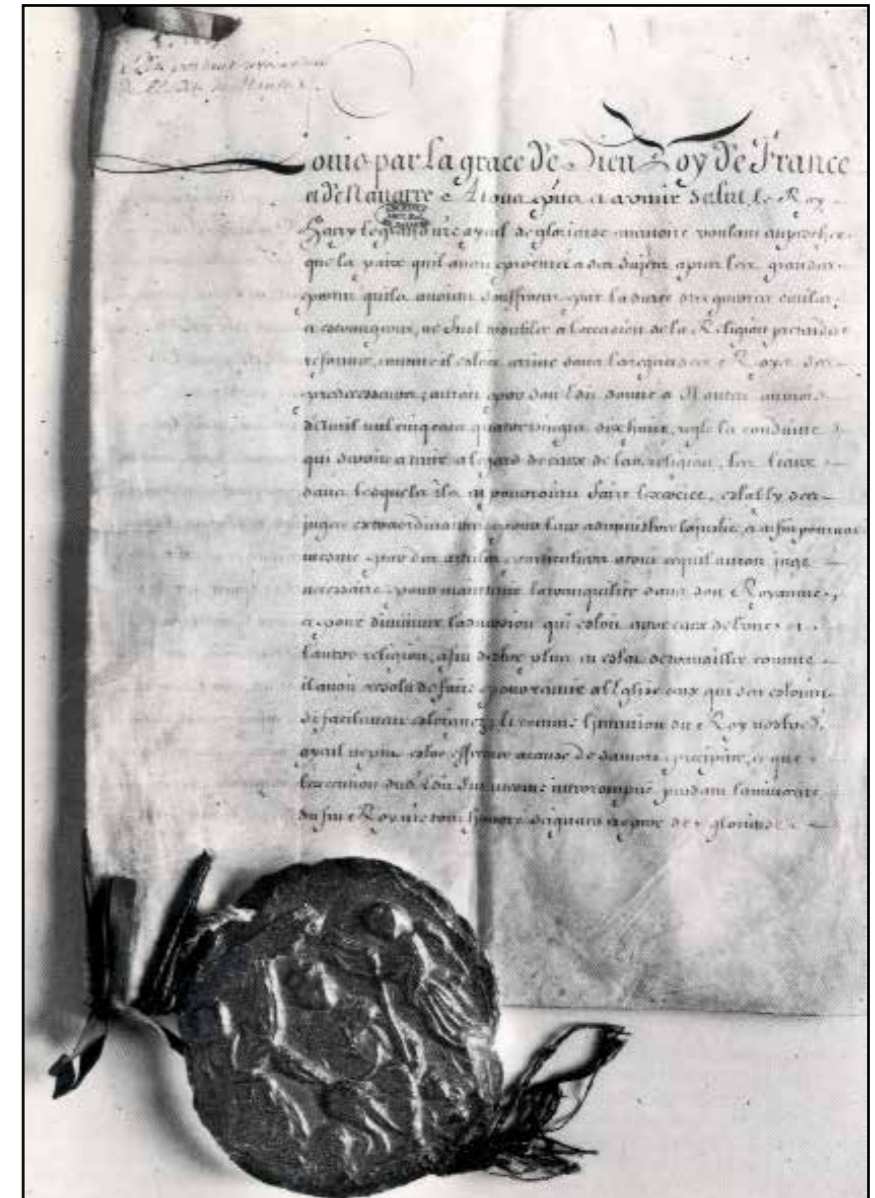 Edit portant revocation
de l'Edit de Nantes
Louis par la grace de Dieu Roy de France
et de Navarre A tous presens et a venir salut, le Roy
Henry le grand nre ayeul de glorieuse memoire voulant empescher
que la paix quil avoit procurée a ses sujets apres les grandes
pertes quils avoient souffertes par la durée des guerres civiles
et estrangeres, ne fust troublée a l'occasion de la Religion pretendue
reformée, comme il estoit arrivé sous les regnes des Roys ses
predecesseurs, auroit par son Edit donné a Nantes au mois
d'avril mil cinq cens quatre vingts dix huit, reglé la conduite
qui devoit a tenir a l'egard de ceux de lad. religion, les lieux
dans lesquels ils en pourroient faire l'exercice, estably des
juges extraordinaires pour leur administrer la justice, et enfin pourveu
mesme par des articles particuliers a tout ce quil auroit jugé
necessaire pour maintenir la tranquilité dans son Royaume,
et pour diminuer l'aversion qui estoit entre ceux de l'une et
l'autre religion, afin d'estre plus en estat de travailler comme
il avoit resolu de faire pour reunir a l'Eglise ceux qui s'en estoient
si facilement esloignez, et comme l'intention du Roy nostred.
ayeul ne put estre effectuée a cause de sa mort precipitée, et que
l'execution dud. Edit fut mesme interrompue pendant la minorité
du feu Roy nre tres honoré seigneur et pere de glorieuse